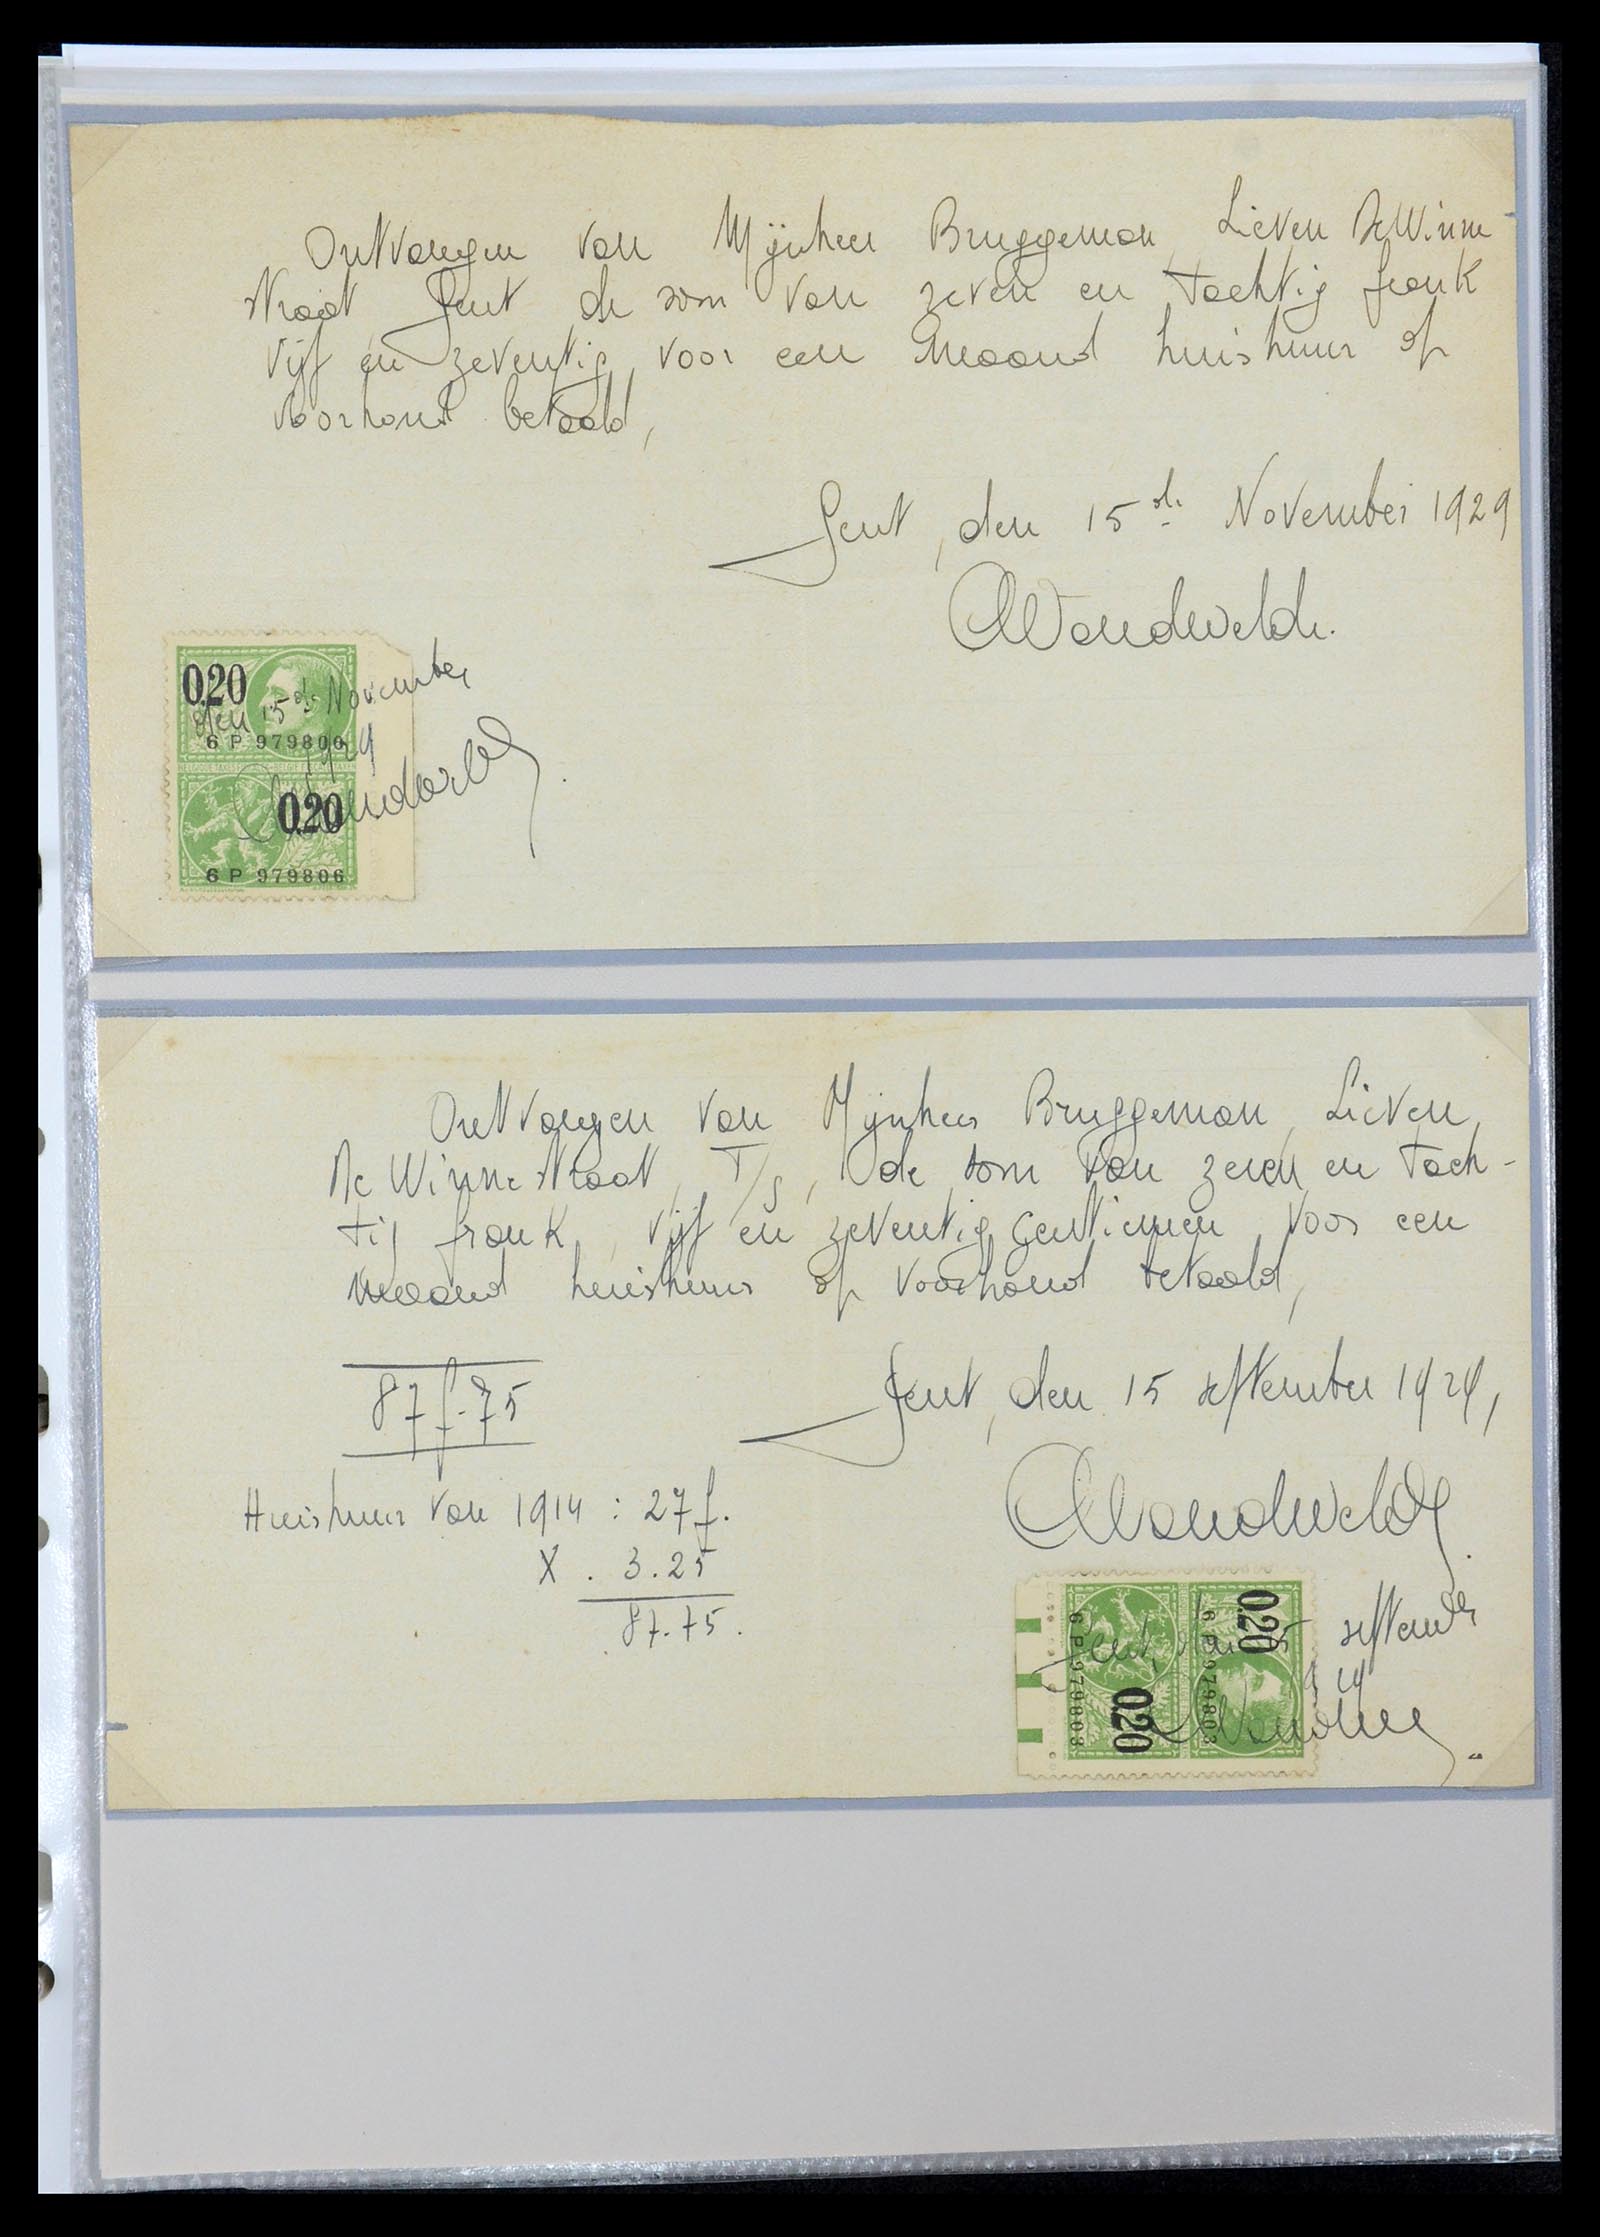 Ontvangen van Mijnheer Bruggeman, Lieven DeWinne
straat Gent de som van zeven en tachtig frank
vijf en zeventig, voor een maand huishuur op
voorhand betaald,
Gent, den 15de November 1929
0.20
den 15de November
6 P 979806
1929
BELGIQUE TAXES
0.20
6 P 979806
Ontvangen van Mijnheer Bruggeman, Lieven
De Winnestraat, T/S, de som van zeven en tach-
tig frank, vijf en zeventig centiemen voor een
maand huishuur op voorhand betaald,
87 f. 75
Gent, den 15 september 1929,
Huishuur van 1914 : 27 f.
X . 3.25
87.75.
0.20
6 P 979803
Gent, den 15 september
1929
0.20
6 P 979803